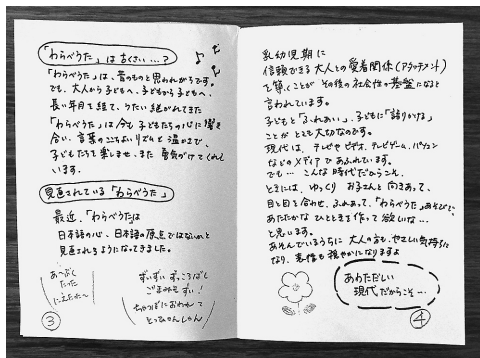 「わらべうた」は古くさい…?
「わらべうた」は、昔のものと思われがちです。
でも、大人から子どもへ、子どもから子どもへ、
長い年月を経て、うたい継がれてきた
「わらべうた」は今も子どもたちの心に響き
合い、言葉のここちよいリズムと温かさで、
子どもたちを楽しませ、また勇気づけてくれて
います。
見直されている「わらべうた」
最近、「わらべうた」は
日本語の心、日本語の原点ではないかと
見直されるようになってきました。
あーぶく
たった
にえたった〜
ずいずいずっころばし
ごまみそずい!
ちゃつぼにおわれて
とっぴんしゃん
③
乳幼児期に
信頼できる大人との愛着関係(アタッチメント)
を築くことがその後の社会性の基盤になると
言われています。
子どもと「ふれあい」、子どもに「語りかける」
ことがとても大切なのです。
現代は、テレビやビデオ、テレビゲーム、パソコン
などのメディアがあふれています。
でも… こんな時代だからこそ、
ときには、ゆっくりお子さんと向きあって、
目と目を合わせ、ふれあって、「わらべうた」あそびで、
あたたかなひとときを作って欲しいな…
と思います。
あそんでいるうちに大人の方も、やさしい気持ちに
なり、表情も穏やかになりますよ
あわただしい
現代だからこそ…
④